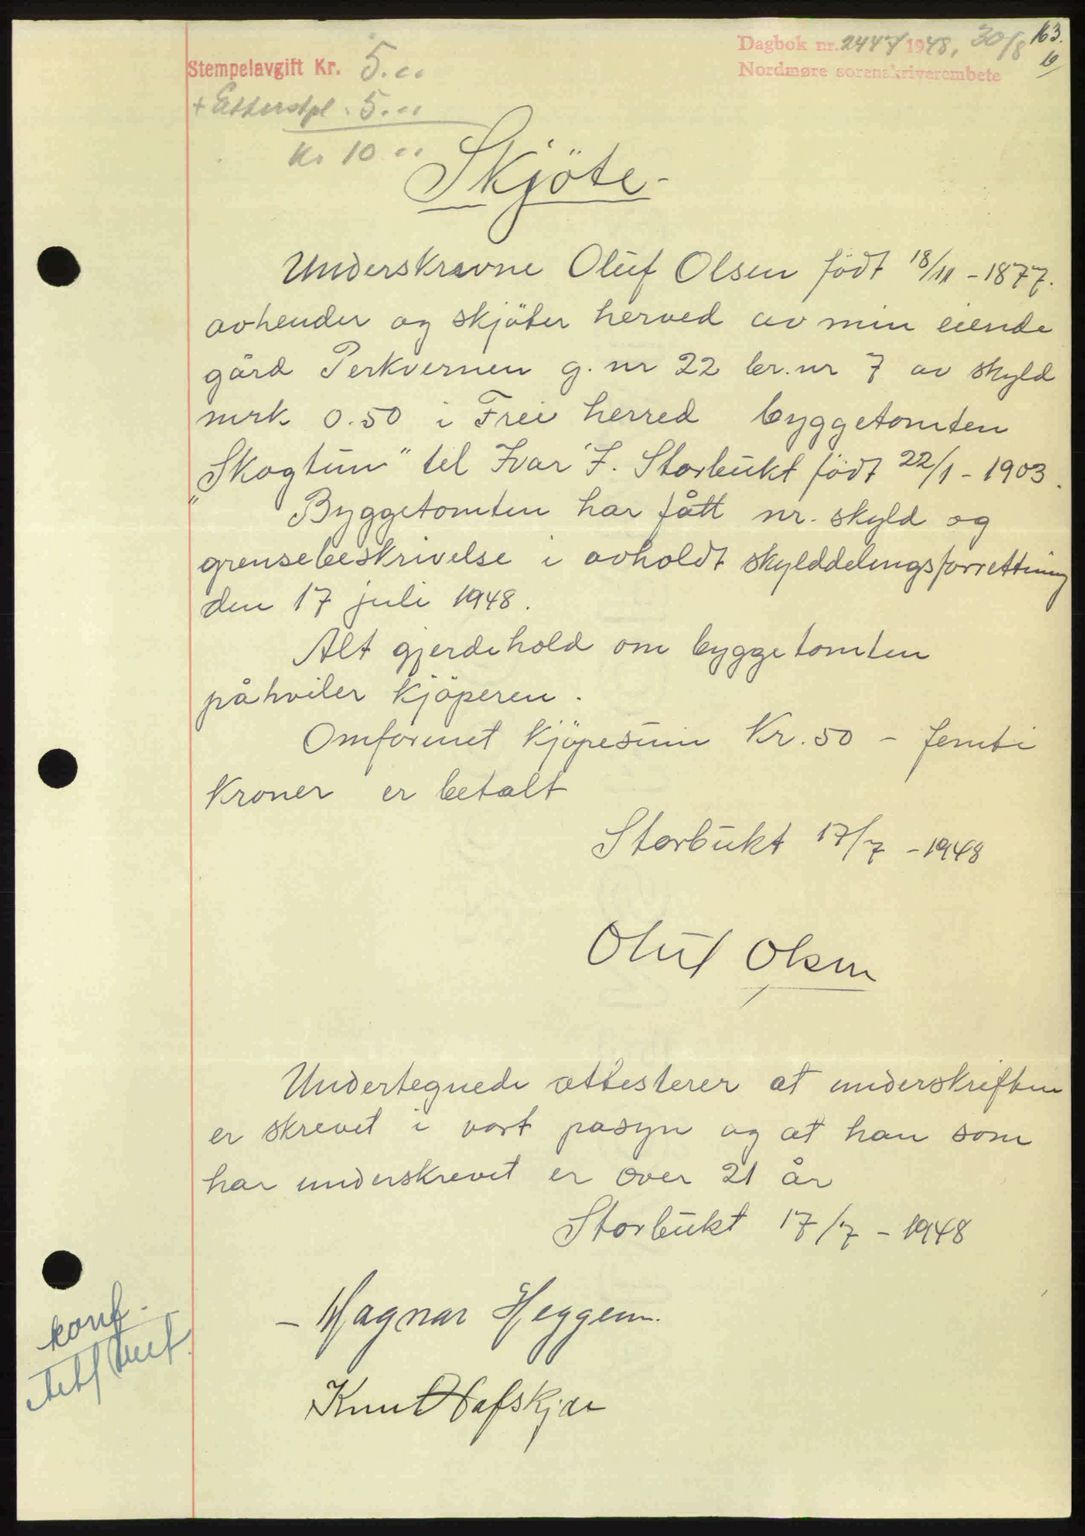 163.
Dagbok nr. 2447/1948, 30/8
Nordmøre sorenskriverembete
Stempelavgift Kr. 5.00
+ Etterstpl. 5.00
Kr 10.00
Skjöte
Underskrevne Oluf Olsen födt 18/11 - 1877.
avhender og skjöter herved av min eiende
gård Perkvernen g. nr 22 br. nr 7 av skyld
mrk 0.50 i Frei herred byggetomten
"Skogtun" til Ivar F. Storbukt födt 22/1 - 1903.
Byggetomten har fått nr. skyld og
grensebeskrivelse i avholdt skylddelingsforrettning
den 17 juli 1948.
Alt gjerdehold om byggetomten
påhviler kjöperen.
Omforenet kjöpesum Kr. 50 - femti
kroner er betalt
Storbukt 17/7 - 1948
Oluf Olsen
Undertegnede attesterer at underskriften
er skrevet i vort påsyn og at han som
har underskrevet er over 21 år
Storbukt 17/7 - 1948
- Magnar Heggem.
Knut Hafskjær
konf.